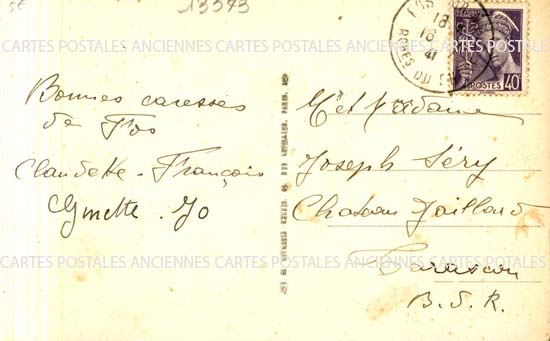 5€
13373
FOS
18
16
41
BCHES-DU-
POSTES 40
Bonnes caresses
de Fos
Claudette - François
Ginette - Jo
Mr et Madame
Joseph Séry
Chateau Jaillard
Tarascon
B. d. R.
CARTES POSTALES ANCIENNES CARTES POSTALES ANCIENNES CARTES POSTALES
CARTES POSTALES ANCIENNES CARTES POSTALES ANCIENNES CARTES POSTALES